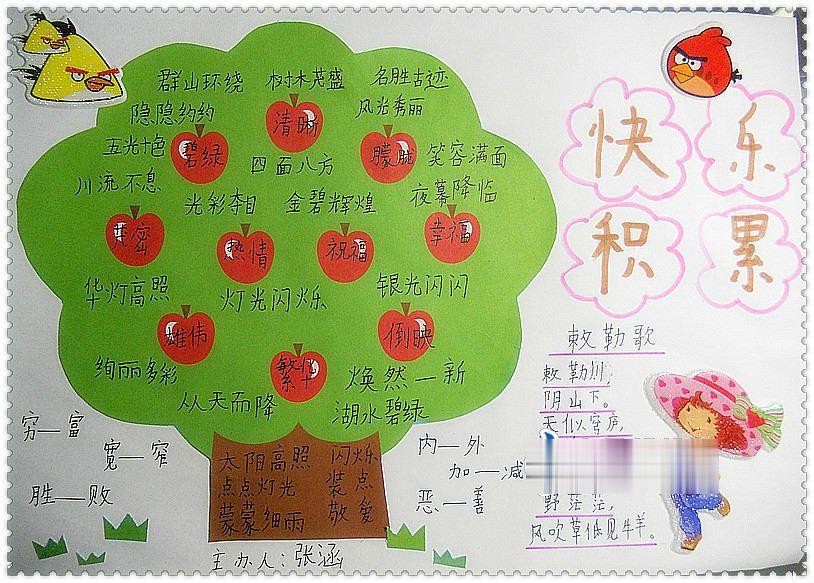 快乐
积累
群山环绕 树木茂盛 名胜古迹
隐隐约约 风光秀丽
清晰
五光十色 碧绿 四面八方 朦胧 笑容满面
川流不息 光彩夺目 金碧辉煌 夜幕降临
茂密 热情 祝福 幸福
华灯高照 灯光闪烁 银光闪闪
雄伟 倒映
绚丽多彩 繁华 焕然一新
从天而降 湖水碧绿
太阳高照 闪烁
点点灯光 装点
蒙蒙细雨 敬爱
穷—富
宽—窄
胜—败
内—外
加—减
恶—善
敕勒歌
敕勒别,
阴山下。
天似穹庐,
野茫茫,
风吹草低见牛羊。
主办人:张涵